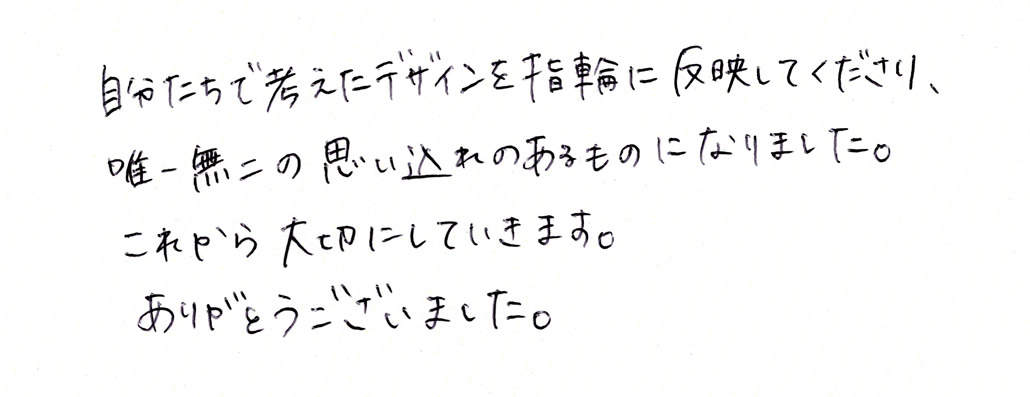 自分たちで考えたデザインを指輪に反映してくださり、
唯一無二の思い込れのあるものになりました。
これから大切にしていきます。
ありがとうございました。